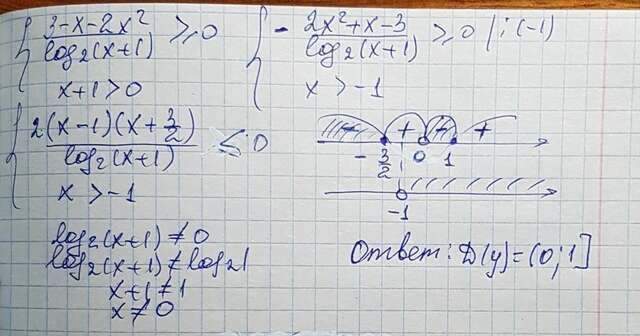 { (3-x-2x²)/(log₂(x+1)) ≥ 0
x+1 > 0
{ - (2x²+x-3)/(log₂(x+1)) ≥ 0 | :(-1)
x > -1
{ (2(x-1)(x+3/2))/(log₂(x+1)) ≤ 0
x > -1
- + - +
-3/2 0 1
-1
log₂(x+1) ≠ 0
log₂(x+1) ≠ log₂1
x+1 ≠ 1
x ≠ 0
Ответ: D(y) = (0;1]